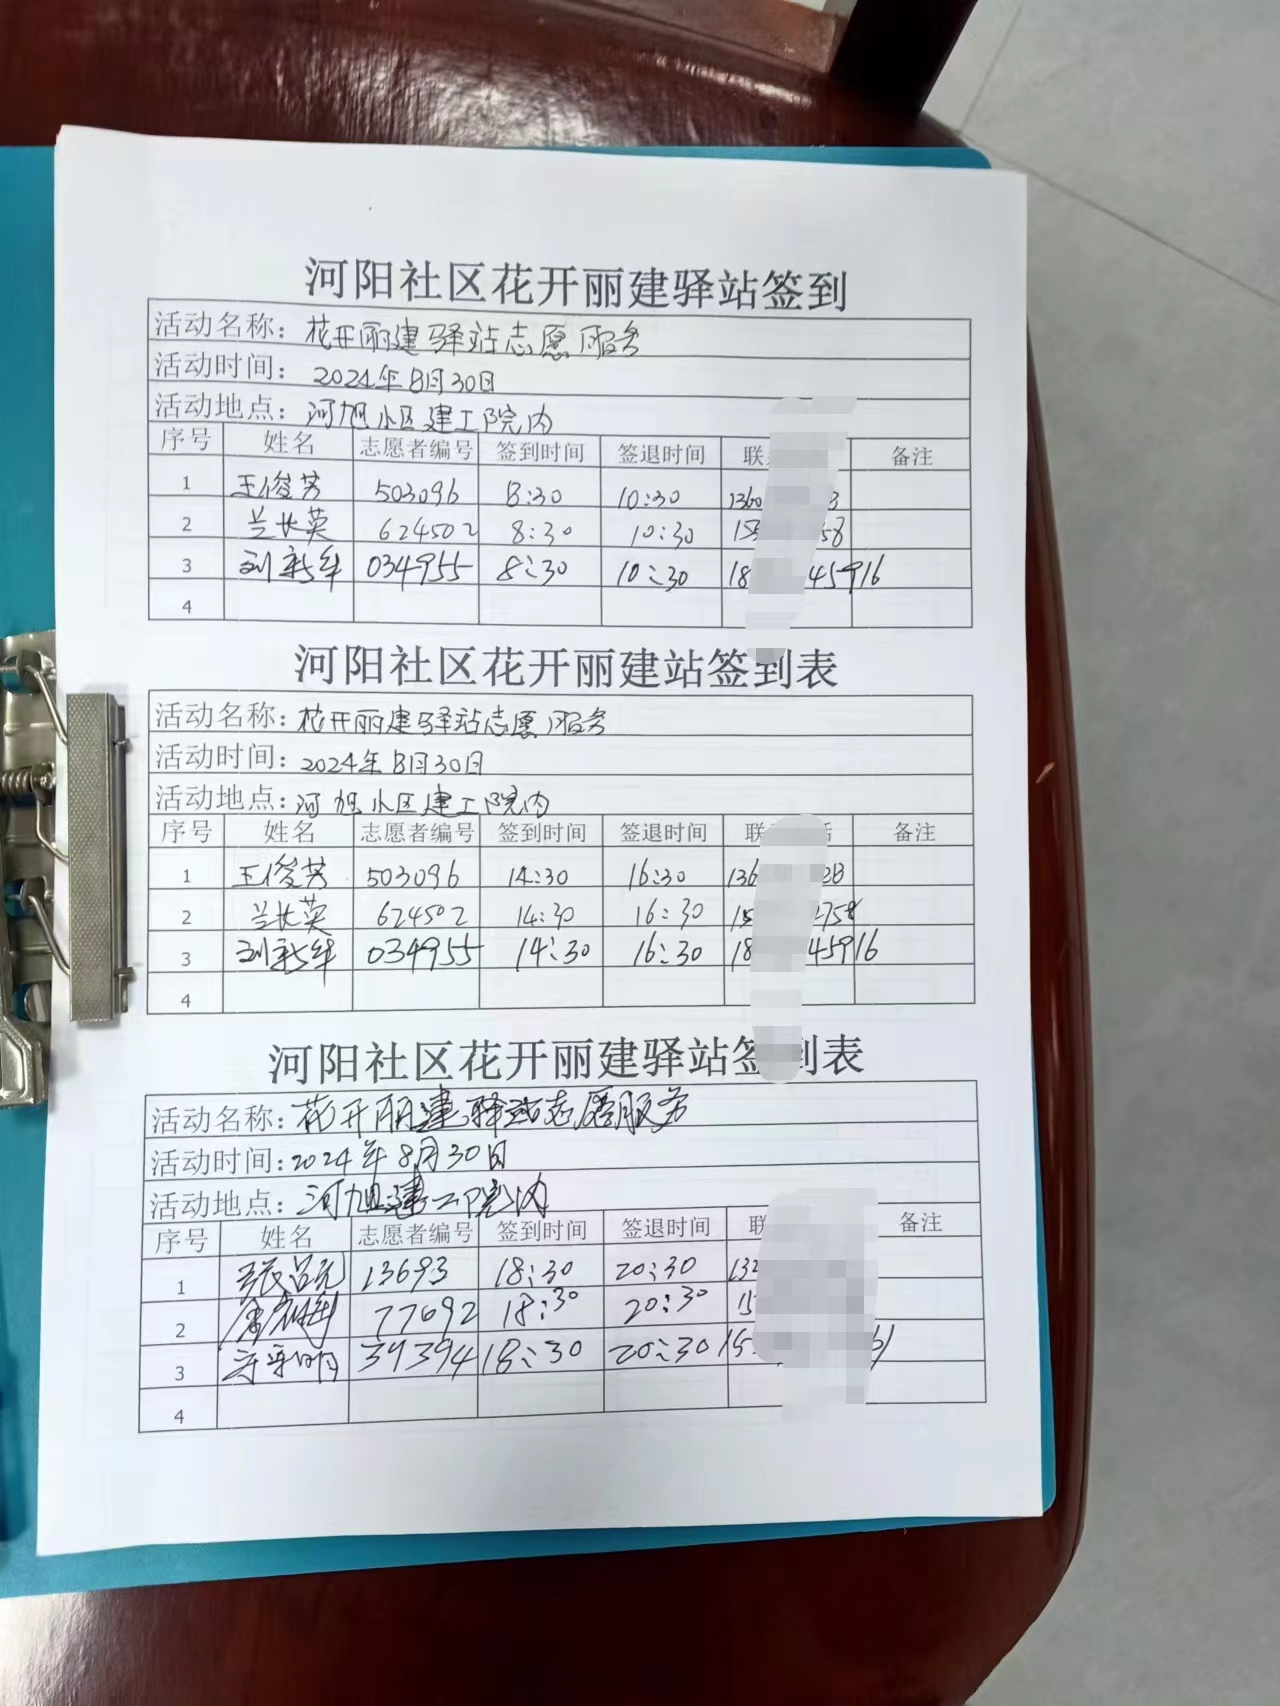 河阳社区花开丽建驿站签到
活动名称：花开丽建驿站志愿服务
活动时间：2024年8月30日
活动地点：河旭小区建工院内
序号 姓名 志愿者编号 签到时间 签退时间 联 备注
1 王俊芳 503096 8:30 10:30 1360 3
2 兰长英 624502 8:30 10:30 15 58
3 刘新年 034955 8:30 10:30 18 45916
4
河阳社区花开丽建站签到表
活动名称：花开丽建驿站志愿服务
活动时间：2024年8月30日
活动地点：河旭小区建工院内
序号 姓名 志愿者编号 签到时间 签退时间 联 话 备注
1 王俊芳 503096 14:30 16:30 136 28
2 兰长英 624502 14:30 16:30 15 758
3 刘新年 034955 14:30 16:30 18 45916
4
河阳社区花开丽建驿站签到表
活动名称：花开丽建驿站志愿服务
活动时间：2024年8月30日
活动地点：河旭建工院内
序号 姓名 志愿者编号 签到时间 签退时间 联 备注
1 13693 18:30 20:30 132
2 77692 18:30 20:30 15
3 39394 18:30 20:30 15 61
4